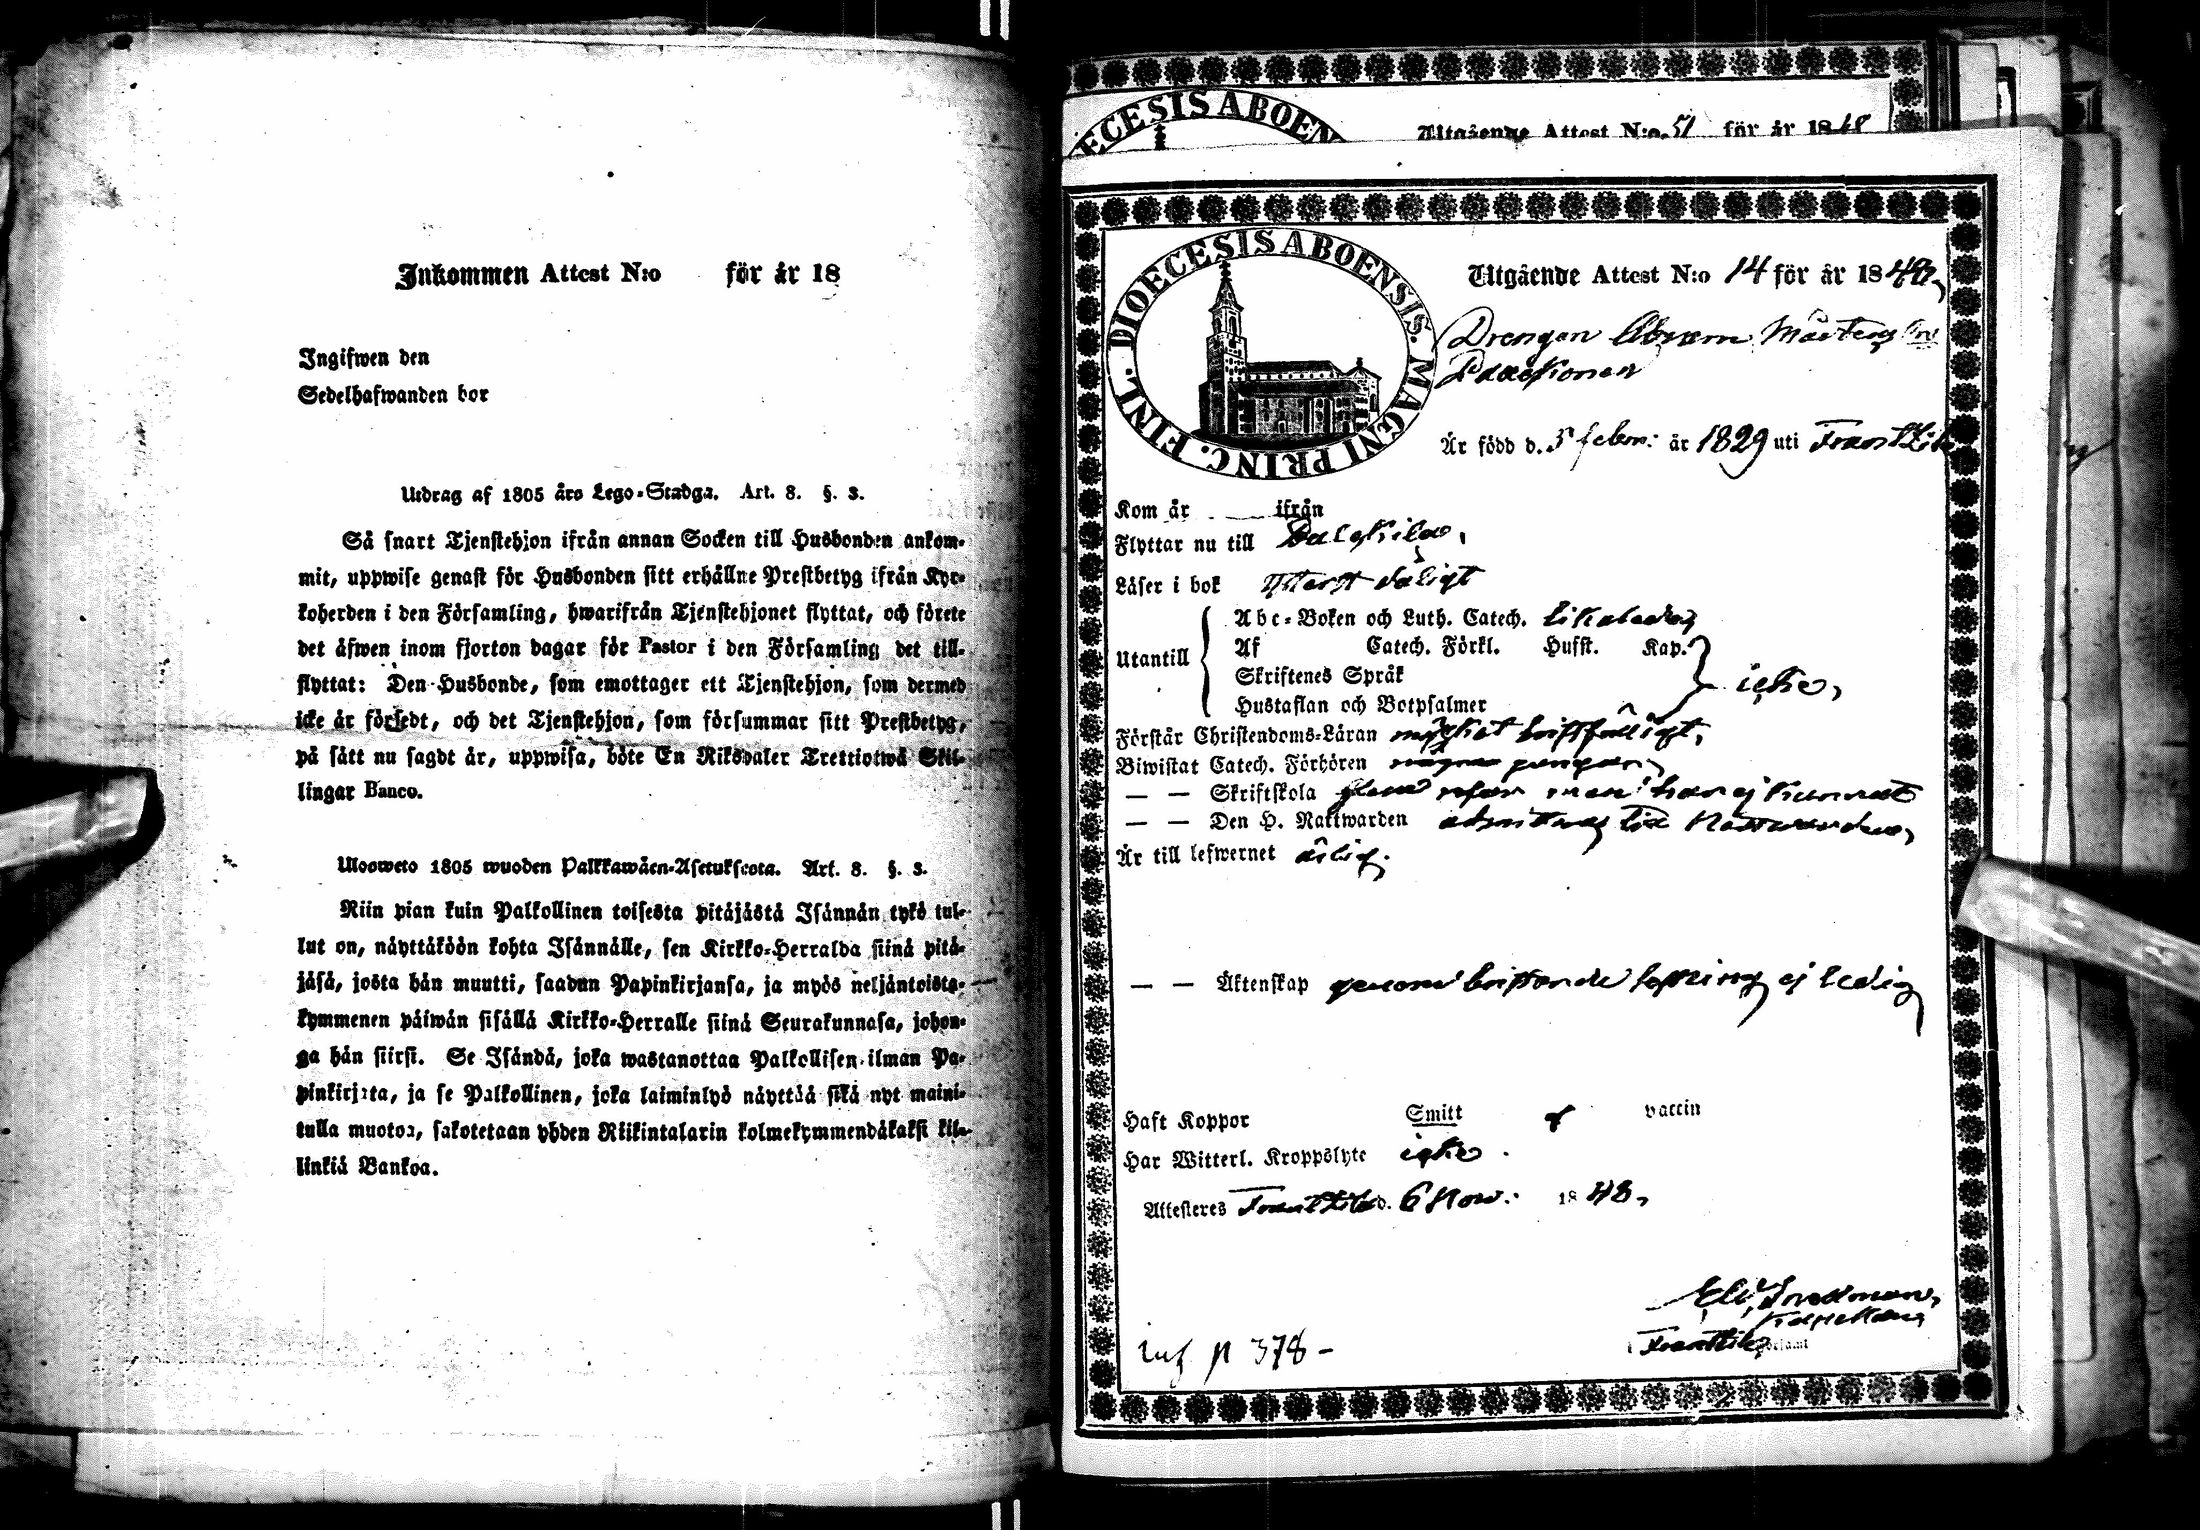 Inkommen Attest N:o för år 18
Ingifwen den
Sedelhafwanden bor
Utdrag af 1805 års Lego-Stadga. Art. 8. §. 3.
Så snart Tjenstehjon ifrån annan Socken till Husbonden ankom-
mit, uppwise genast för Husbonden sitt erhållne Prestbetyg ifrån Kyr-
koherden i den Församling, hwarifrån Tjenstehjonet flyttat, och förete
det äfwen inom fjorton dagar för Pastor i den Församling det till-
flyttat: Den Husbonde, som emottager ett Tjenstehjon, som dermed
icke är försedt, och det Tjenstehjon, som försummar sitt Prestbetyg,
på sätt nu sagdt är, uppwisa, böte En Riksdaler Trettiotwå Skil-
lingar Banco.
Uloosweto 1805 wuoden Palkkawäen-Asetuksesta. Art. 8. §. 3.
Niin pian kuin Palkollinen toisesta pitäjästä Isännän tykö tul-
lut on, näyttäköön kohta Isännälle, sen Kirkko-Herralda siinä pitä-
jäsä, josta hän muutti, saadun Papinkirjansa, ja myös neljäntoista-
kymmenen päiwän sisällä Kirkko-Herralle siinä Seurakunnasa, johon-
ga hän siirsi. Se Isändä, joka wastanottaa Palkollisen ilman Pa-
pinkirjata, ja se Palkollinen, joka laiminlyö näyttää sitä nyt maini-
tulla muotoa, sakotetaan yhden Riikintalarin kolmekymmendäkaksi kil-
linkiä Bankoa.
DIOECESIS ABOEN
Utgående Attest N:o 51 för år 1848
DIOECESIS ABOENSIS. MAGNI PRINC. FINL.
Utgående Attest N:o 14 för år 1848,
Drengen Abram Mårtensson
Är född d. 5 febru: år 1829 uti Frantzila
Kom år ifrån
Flyttar nu till
Läser i bok ytterst dåligt
Utantill
Abc-Boken och Luth. Catech. likaledes
Af Catech. Förkl. Husst. Kap.
Skriftenes Språk
Hustaflan och Botpsalmer
icke,
Förstår Christendoms-Läran mycket bristfälligt,
Biwistat Catech. Förhören några gånger,
— — Skriftskola flere resor men har ej kunnat
— — Den H. Nattwarden admitteras till Nattwarden,
Är till lefwernet ärlig.
— — Äktenskap genom bristande läsning ej ledig
Haft Koppor Smitt vaccin
Har Witterl. Kroppslyte icke.
Attesteres Frantzila d. 6 Nov: 1848,
Frantzila
p 378 -